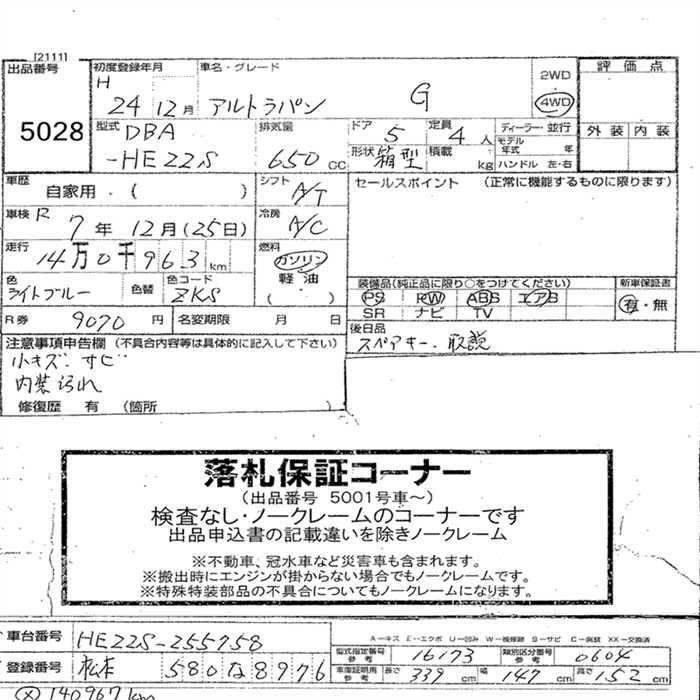 [2111]
出品番号 5028
初度登録年月 H 24 12月
車名・グレード アルトラパン G
2WD 4WD
評価点
外装 内装
型式 DBA-HE22S
排気量 650 CC
ドア 5
定員 4人
形状 箱型
積載 kg
ディーラー・並行
モデル年式 年
ハンドル 左・右
車歴 自家用・( )
シフト A/T
セールスポイント (正常に機能するものに限ります)
車検 R 7年 12月(25日)
冷房 A/C
走行 14万0千963km
燃料 ガソリン 軽油 ( )
色 ライトブルー 色替
色コード ZKS
装備品(純正品に限り○をつけてください)
PS PW ABS エアB
SR ナビ TV
新車保証書 有・無
R券 9070円
名変期限 月 日
後日品 スペアキー、取説
注意事項申告欄 (不具合内容等は具体的に記入して下さい)
小キズ・サビ
内装汚れ
修復歴 有 (箇所 )
落札保証コーナー
(出品番号 5001号車～)
検査なし・ノークレームのコーナーです
出品申込書の記載違いを除きノークレーム
※不動車、冠水車など災害車も含まれます。
※搬出時にエンジンが掛からない場合でもノークレームです。
※特殊特装部品の不具合についてもノークレームになります。
A-キズ E-エクボ U-凹み W-補修跡 S-サビ C-腐蝕 XX-交換済
車台番号 HE22S-255758
型式指定番号 参考 16173
類別区分番号 参考 0604
登録番号 松本 580 な 8976
車庫証明用 参考 長さ 339cm 幅 147cm 高さ 152cm
140967km